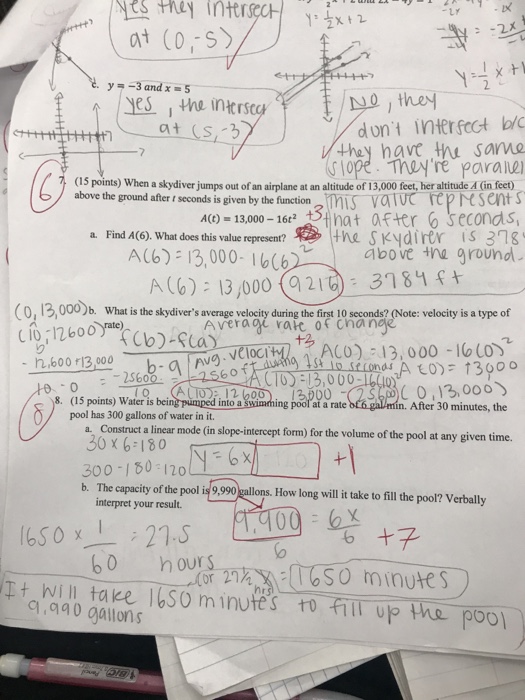 Yes they intersect
at (0,-5)
y = 1/2x + 2
-2x
y = 1/2 x + 1
c. y = -3 and x = 5
Yes, the intersect
at (5,-3)
No, they
don't intersect b/c
they have the same
slope. They're parallel
6
7. (15 points) When a skydiver jumps out of an airplane at an altitude of 13,000 feet, her altitude A (in feet)
above the ground after t seconds is given by the function
A(t) = 13,000 – 16t²
+3
This value represents
that after 6 seconds,
the skydirer is 378
above the ground.
a. Find A(6). What does this value represent?
A(6) = 13,000 - 16(6)²
A(6) = 13,000 - (9216) = 3784 ft
b. What is the skydiver's average velocity during the first 10 seconds? (Note: velocity is a type of
rate)
(0, 13,000)
(10, -12600)
Average rate of change
f(b) - f(a)
b - a
+3
-12,600 + 13,000
10 - 0
= -25600
10
Avg. velocity
-2560 ft during 1st 10 seconds
A(0) = 13,000 - 16(0)²
A(0) = 13000
A(10) = 13,000 - 16(10)²
A(10) = 12600
13000 - 25600
(0, 13,000)
8
8. (15 points) Water is being pumped into a swimming pool at a rate of 6 gal/min. After 30 minutes, the
pool has 300 gallons of water in it.
a. Construct a linear mode (in slope-intercept form) for the volume of the pool at any given time.
30 x 6 = 180
300 - 180 = 120
y = 6x
+1
b. The capacity of the pool is 9,990 gallons. How long will it take to fill the pool? Verbally
interpret your result.
9,900 = 6x
6 6
+7
1650 x 1/60 = 27.5
hours
(or 27 1/2 hrs)
x = 1650 minutes
It will take 1650 minutes to fill up the pool
9,990 gallons
BIC